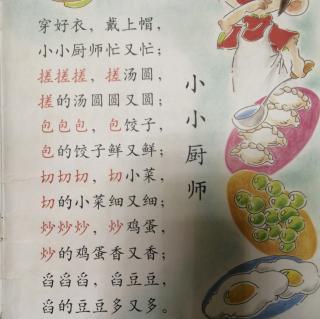 小小厨师
穿好衣，戴上帽，
小小厨师忙又忙；
搓搓搓，搓汤圆，
搓的汤圆圆又圆；
包包包，包饺子，
包的饺子鲜又鲜；
切切切，切小菜，
切的小菜细又细；
炒炒炒，炒鸡蛋，
炒的鸡蛋香又香；
舀舀舀，舀豆豆，
舀的豆豆多又多。